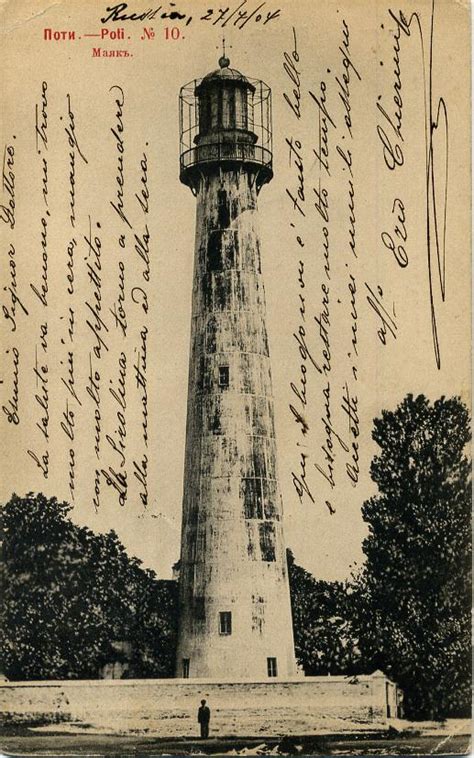 Russia, 27/7/04
Поти.—Poti. № 10.
Маякъ.
Signor Dottore.
La salute va benone, mi trovo
molto più in cera, mangio
con molto appetito.
La Sirolina torno a prendere
alla mattina ed alla sera.
Qui il soggiorno è tanto bello
e bisogna restare molto tempo.
Accetti i miei umili ossequi